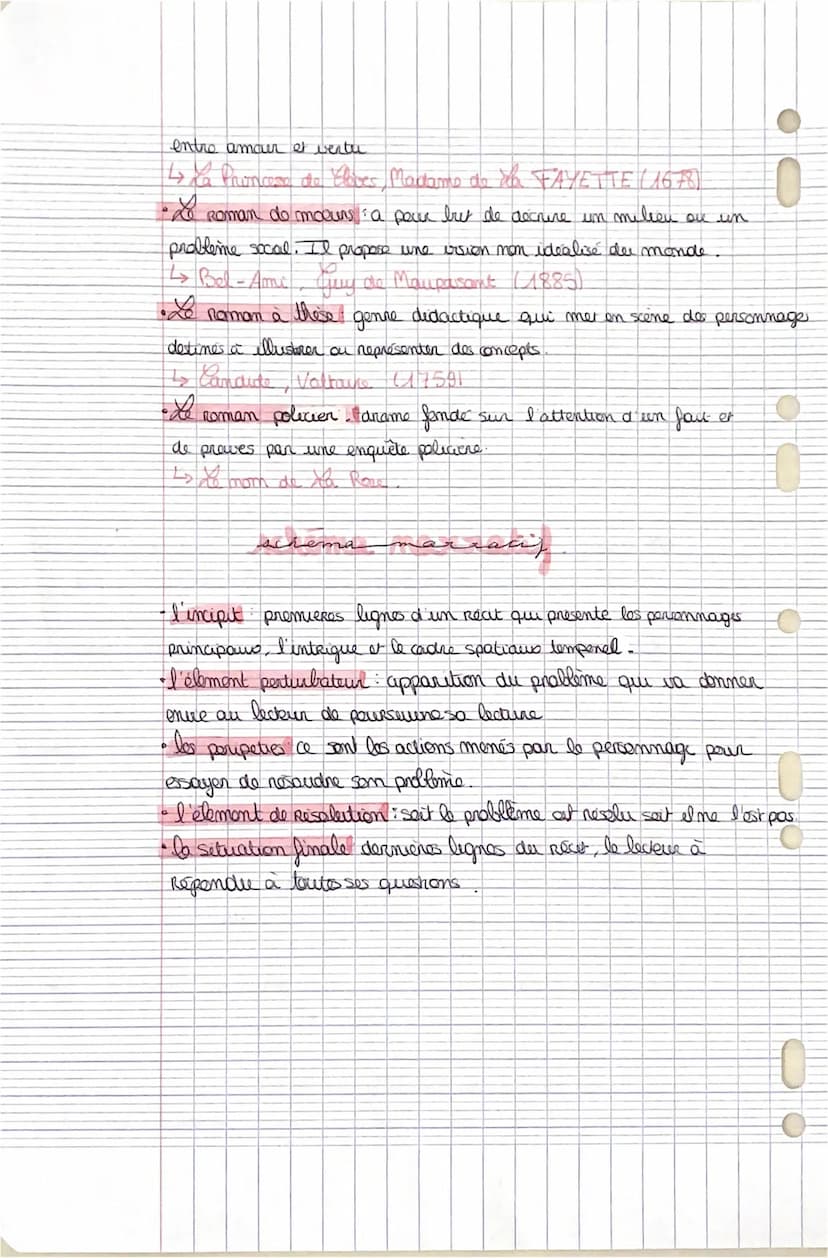 entre amour et vertu
↳ La Princesse de Clèves, Madame de La FAYETTE (1678)
• Le roman de moeurs : a pour but de décrire un milieu ou un
problème social. Il propose une vision non idéalisé du monde.
↳ Bel-Ami, Guy de Maupasant (1885)
• Le roman à thèse : genre didactique qui met en scène des personnages
destinés à illustrer ou représenter des concepts.
↳ Candide, Voltaire (1759)
• Le roman policier : drame fondé sur l'attention d'un fait et
de preuves par une enquête policière.
↳ Le nom de La Rose.
schéma narratif
- l'incipit : premieres lignes d'un récit qui presente les personnages
principaux, l'intrigue et le cadre spatiaux temporel.
• l'élement perturbateur : apparition du problème qui va donner
envie au lecteur de poursuivre sa lecture
• les péripeties ce sont les actions menés par le personnage pour
essayer de résoudre son problème.
• l'élement de Résolution : soit le problème est résolu soit il ne l'est pas.
• la situation finale dernières lignes du récit, le lecteur à
Répondu à toutes ses questions.